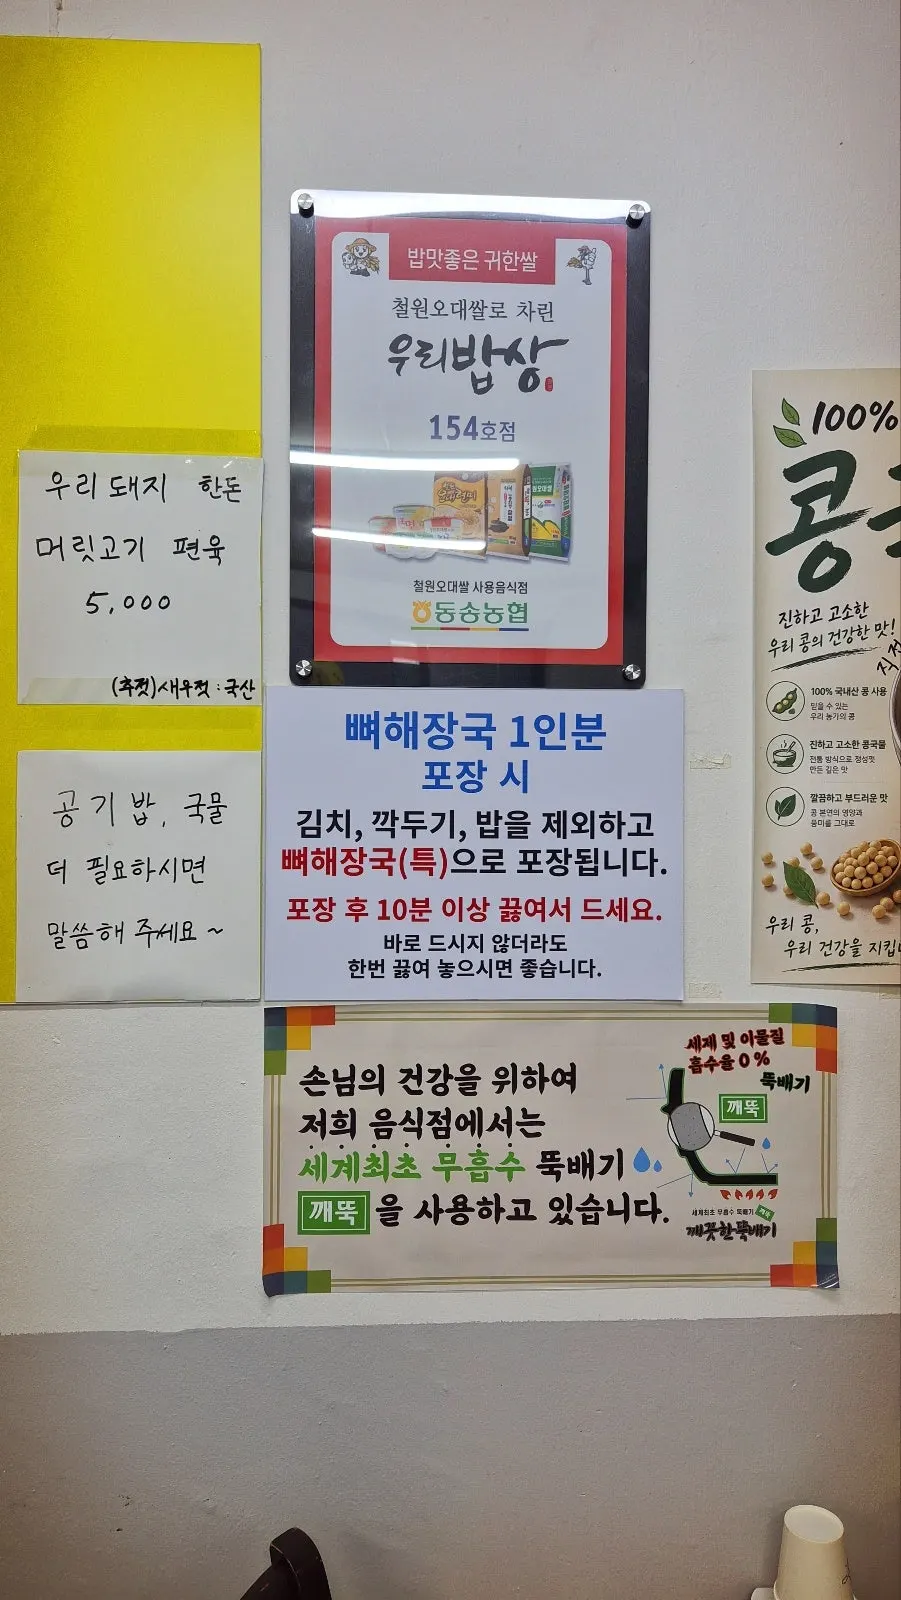 밥맛좋은 귀한쌀
철원오대쌀로 차린
우리밥상
154호점
철원오대쌀 사용음식점
동송농협
우리돼지 한돈
머릿고기 편육
5,000
(추젓)새우젓:국산
공기밥, 국물
더 필요하시면
말씀해 주세요~
뼈해장국 1인분
포장 시
김치, 깍두기, 밥을 제외하고
뼈해장국(특)으로 포장됩니다.
포장 후 10분 이상 끓여서 드세요.
바로 드시지 않더라도
한번 끓여 놓으시면 좋습니다.
손님의 건강을 위하여
저희 음식점에서는
세계최초 무흡수 뚝배기
깨뚝을 사용하고 있습니다.
세제 및 이물질
흡수율 0%
뚝배기
깨뚝
세계최초 무흡수 뚝배기 깨뚝
깨끗한뚝배기
100%
콩
진하고 고소한
우리 콩의 건강한 맛!
직접
100% 국내산 콩 사용
믿을 수 있는
우리 농가의 콩
진하고 고소한 콩국물
전통 방식으로 정성껏
만든 깊은 맛
깔끔하고 부드러운 맛
콩 본연의 영양과
풍미를 그대로
우리 콩,
우리 건강을 지킵